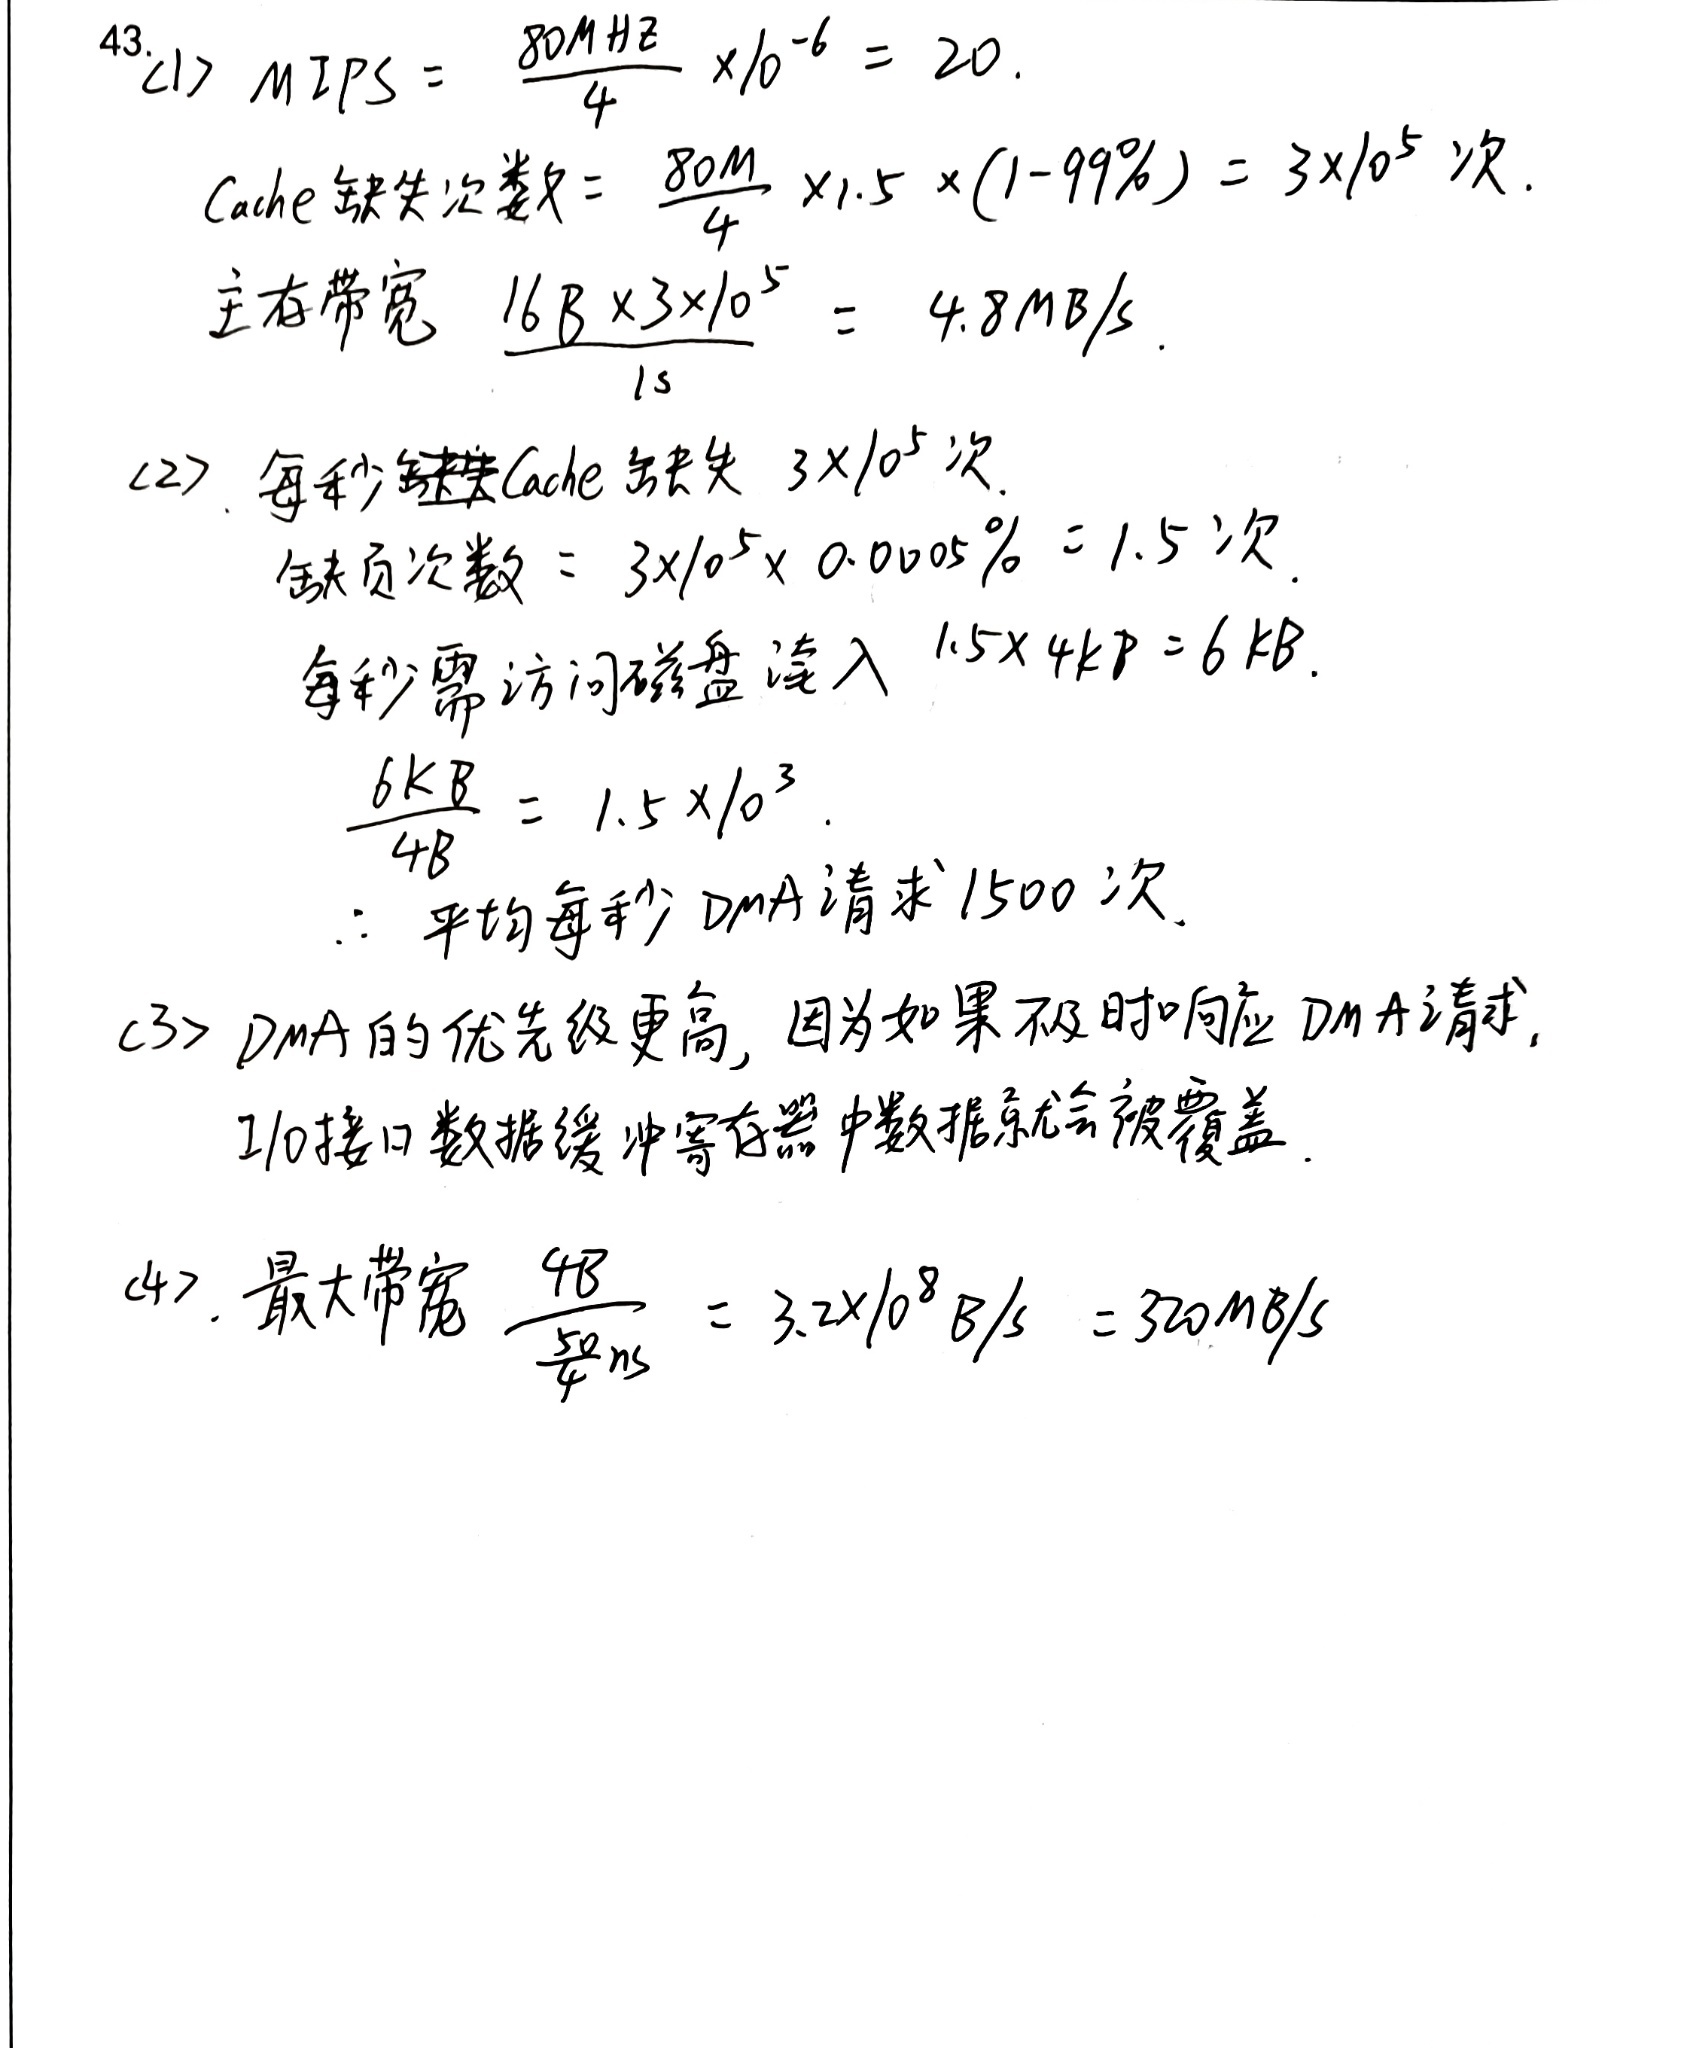 43.
(1) MIPS = 80MHZ/4 ×10⁻⁶ = 20.
Cache缺失次数 = 80M/4 ×1.5 ×(1-99%) = 3×10⁵ 次.
主存带宽 16B×3×10⁵/1s = 4.8MB/s.
(2). 每秒Cache缺失 3×10⁵次.
缺页次数 = 3×10⁵× 0.0005% = 1.5次.
每秒需访问磁盘读入 1.5×4kB = 6KB.
6KB/4B = 1.5×10³.
∴ 平均每秒DMA请求1500次.
(3) DMA的优先级更高, 因为如果不及时响应DMA请求,
I/O接口数据缓冲寄存器中数据就会被覆盖.
(4). 最大带宽 4B/(50/4 ns) = 3.2×10⁸ B/s = 320MB/s